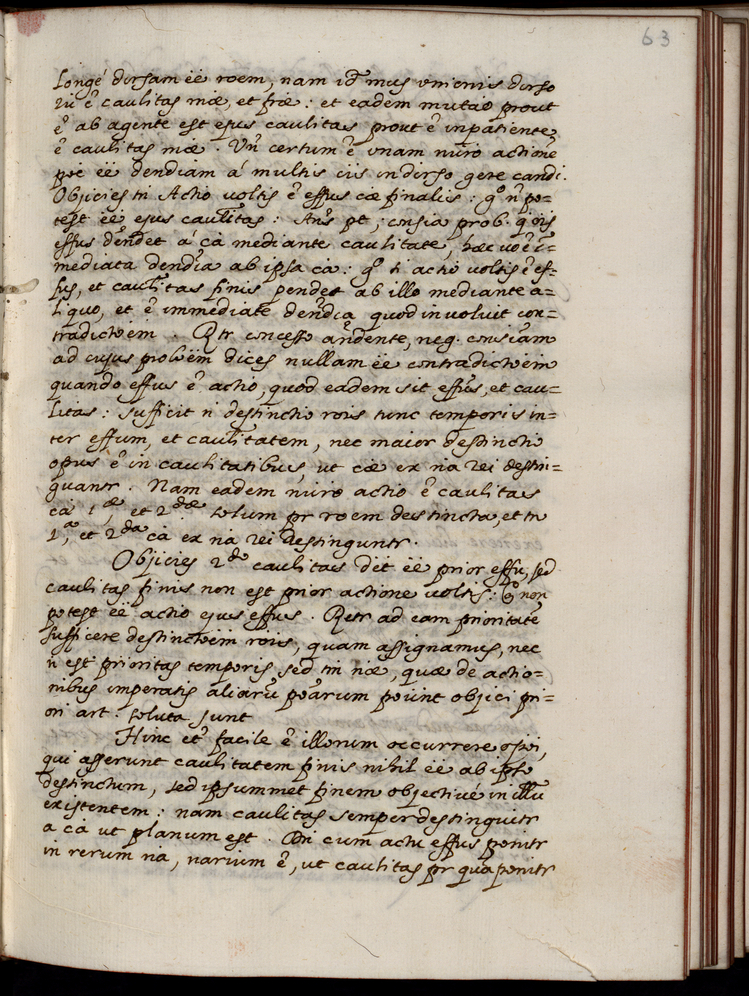 63
longé dirsam ëe roem, nam id mus unienis dirso
iu ẽ caulitas miæ, et fiæ: et eadem mutaõ prout
ẽ ab agente est ejus caulitas prout ẽ inpatiente
ẽ caulitas miæ. Un̄ certum ẽ unam nūro actionē
põe ëe dendiam á multis ciis indirso gēre candi.
Objicies tn̄ Actio voltis ẽ effus cæ finalis: gº ñ po=
test ëe ejus caulitas: Ans pt; consia prob. q ois
effus dēndet á cà mediante caulitate, hæc vº ẽ i=
mediata dendia ab ipsa cà: gº si actio voltis ẽ ef=
fus, et caulitas finis pendet ab illo mediante a=
liquo, et ẽ immediate dendia quod involuit con=
tradictiõem. Rtr concesso añdente, neg. consiam
ad cujus probem dices nullam ëe contradictiõem
quando effus ẽ actio, quod eadem sit effus, et cau=
litas: sufficit ñ destinctio rois tunc temporis in=
ter effum, et caulitatem, nec maior destinctio
opus ẽ in caulitatibus, ut cæ ex nã rei destin=
guantr. Nam eadem nūro actio ẽ caulitas
cà 1æ, et 2dæ solum pr roem destincta, et tn
1ª, et 2da cà ex nã rei destinguntr.
Objicies 2do caulitas dēt ëe prior effu, sed
caulitas finis non est prior actione voltis: gº non
potest ëe actio ejus effus. Retr ad eam prioritatē
sufficere destinctiõem rois, quam assignamus, nec
ñ est prioritas temporis sed tm̄ næ, quæ de actio=
nibus imperatis aliarū poarum poūnt objici pri=
ori art. soluta sunt
Hinc etº facile ẽ illorum occurrere opioi,
qui asserunt caulitatem finis nihil ëe ab ipso
destinctum, sed ipsummet finem objectivé in illū
existentem: nam caulitas semper destinguitr
a cà ut planum est. Dñ cum actu effus ponitr
in rerum nã, narium ẽ, ut caulitas pr qua ponitr